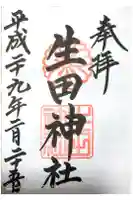 奉拝
生田神社
平成二十九年二月二十五日